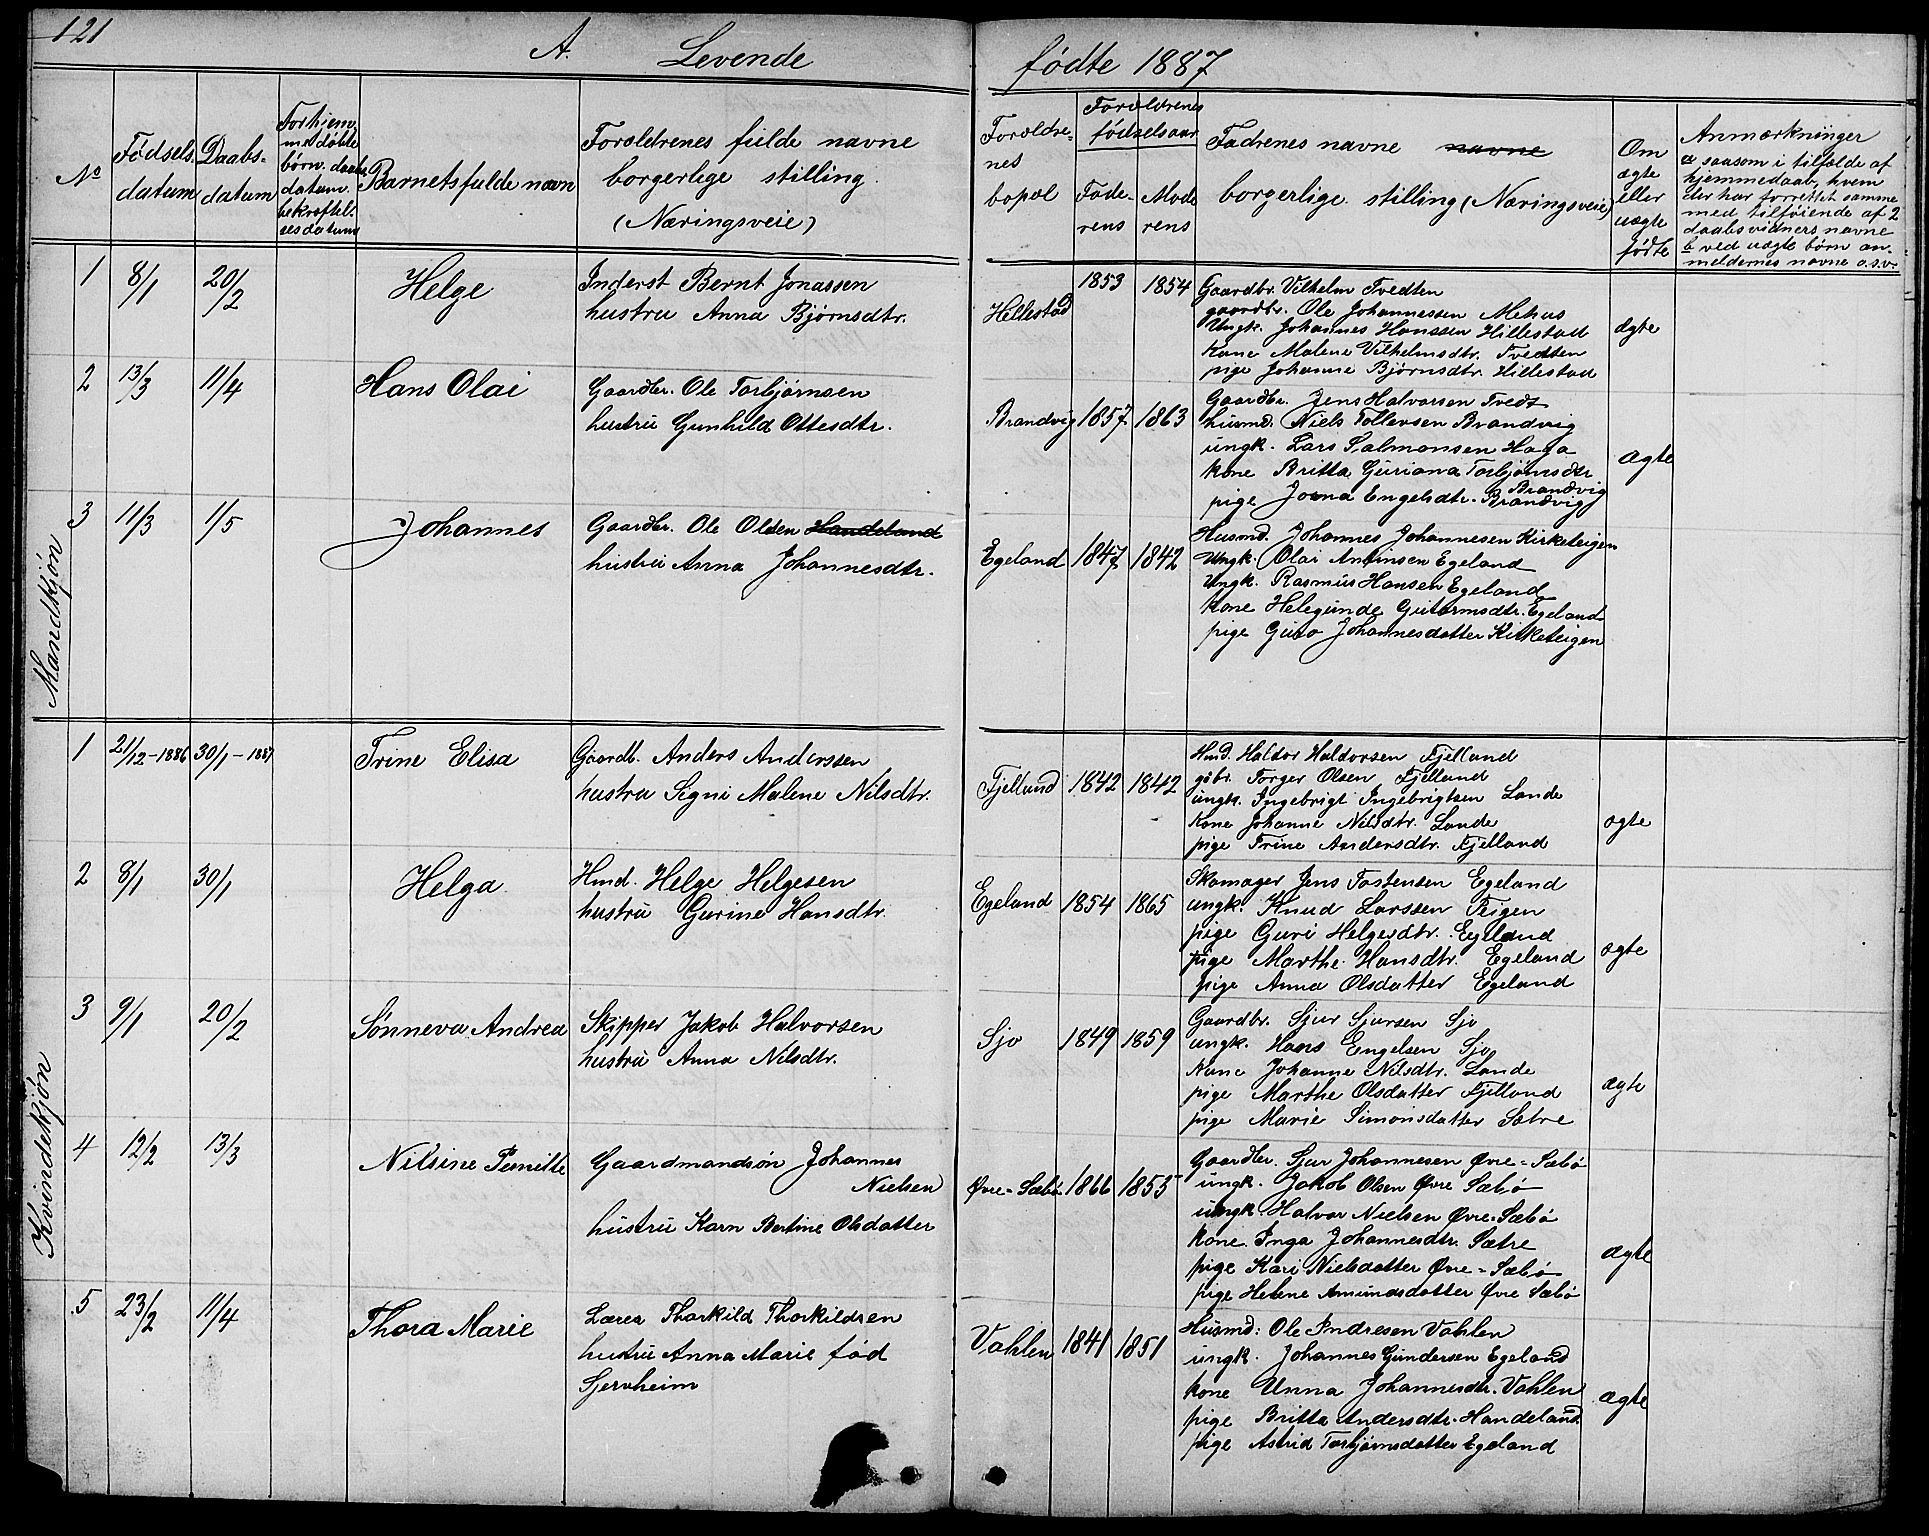 121
A. Levende fødte 1887
No
Fødsels datum
Daabs- datum
Forhjem- medøbte børn. daabs datum. bekræftel- sesdatum
Barnets fulde navn
Forældrenes fulde navne borgerlige stilling. (Næringsveie)
Forældre- nes bopæl
Forældrenes fødselsaar
Fade- rens
Mode rens
Fadrenes navne navne borgerlige stilling (Næringsveie)
Om ægte eller uægte fødte
Anmærkninger
a saasom i tilfælde af
hjemmedaab, hvem
der har forrettet samme
med tilføiende af 2
daabsvidners navne
b ved uægte børn an-
meldernes navne o.s.v.
Mandkjøn
1 8/1 20/2 Helge
Inderst Bernt Jonassen
hustru Anna Bjørnsdtr.
Hillestad 1853 1854
Gaardbr. Vilhelm Tvedten
gaardbr. Ole Johannessen Mehus
Ungk. Johannes Hanssen Hillestad
Kone Malene Vilhelmsdtr. Tvedten
pige Johanne Bjørnsdtr. Hillestad
ægte
2 13/3 11/4 Hans Olai
Gaardbr. Ole Torbjørnsen
hustru Gunhild Ottesdtr.
Brandvig 1857 1863
Gaardbr. Jens Halvorsen Tvedt
husmd. Niels Tollevsen Brandvig
ungk. Lars Salmonsen Haga
kone Britta Guriana Torbjørnsdtr
Brandvig
pige Jorna Engelsdtr. Brandvig
ægte
3 11/3 1/5 Johannes
Gaardbr. Ole Olsen Handeland
hustru Anna Johannesdtr.
Egeland 1847 1842
Husmd. Johannes Johannesen Kirketeigen
Ungk. Olai Anfinsen Egeland
Ungk. Rasmus Hansen Egeland
Kone Helegunde Gutormsdtr. Egeland
pige Guro Johannesdatter Kirketeigen
Kvindekjøn
1 21/12-1886 30/1-1887 Trine Elisa
Gaardb. Anders Anderssen
hustru Signi Malene Nilsdtr.
Fjelland 1842 1842
Hmd. Haldor Haldorsen Fjelland
gdbr. Torger Olsen Fjelland
ungk. Ingebrigt Ingebrigtsen Lande
Kone Johanne Nilsdtr. Lande
pige Trine Andersdtr. Fjelland
ægte
2 8/1 30/1 Helga
Hmd. Helge Helgesen
hustru Gurine Hansdtr.
Egeland 1854 1865
Skomager Jens Tostensen Egeland
ungk. Knud Larssen Teigen
pige Guri Helgesdtr. Egeland
pige Marthe Hansdtr. Egeland
pige Anna Olsdatter Egeland
ægte
3 9/1 20/2 Sønneva Andrea
Skipper Jakob Halvorsen
hustru Anna Nilsdtr.
Sjo 1849 1859
Gaardbr. Sjur Sjursen Sjo
ungk. Hans Engelsen Sjo
Kone Johanne Nilsdtr. Lande
pige Marthe Olsdatter Fjelland
pige Marie Simonsdatter Sætre
ægte
4 12/2 13/3 Nilsine Pernille
Gaardmandsøn Johannes
Nielsen
hustru Karn Bertine Olsdatter
Øvre-Sæbø 1866 1853
Gaardbr. Sjur Johannesen Øvre-Sæbø
ungk. Jakob Olsen Øvre Sæbø
ungk. Halvor Nielsen Øvre-Sæbø
kone Inga Johannesdtr. Sætre
pige Kari Nielsdatter Øvre-Sæbø
pige Helene Amundsdatter Øvre Sæbø
ægte
5 23/2 11/4 Thora Marie
Lærer Thorkild Thorkildsen
hustru Anna Marie fød
Sjervheim
Vahlen 1841 1851
Husmd: Ole Indresen Vahlen
ungk. Johannes Gundersen Egeland
kone Unna Johannesdtr. Vahlen
pige Britta Andersdtr. Handeland
pige Astrid Torbjørnsdatter Egeland
ægte